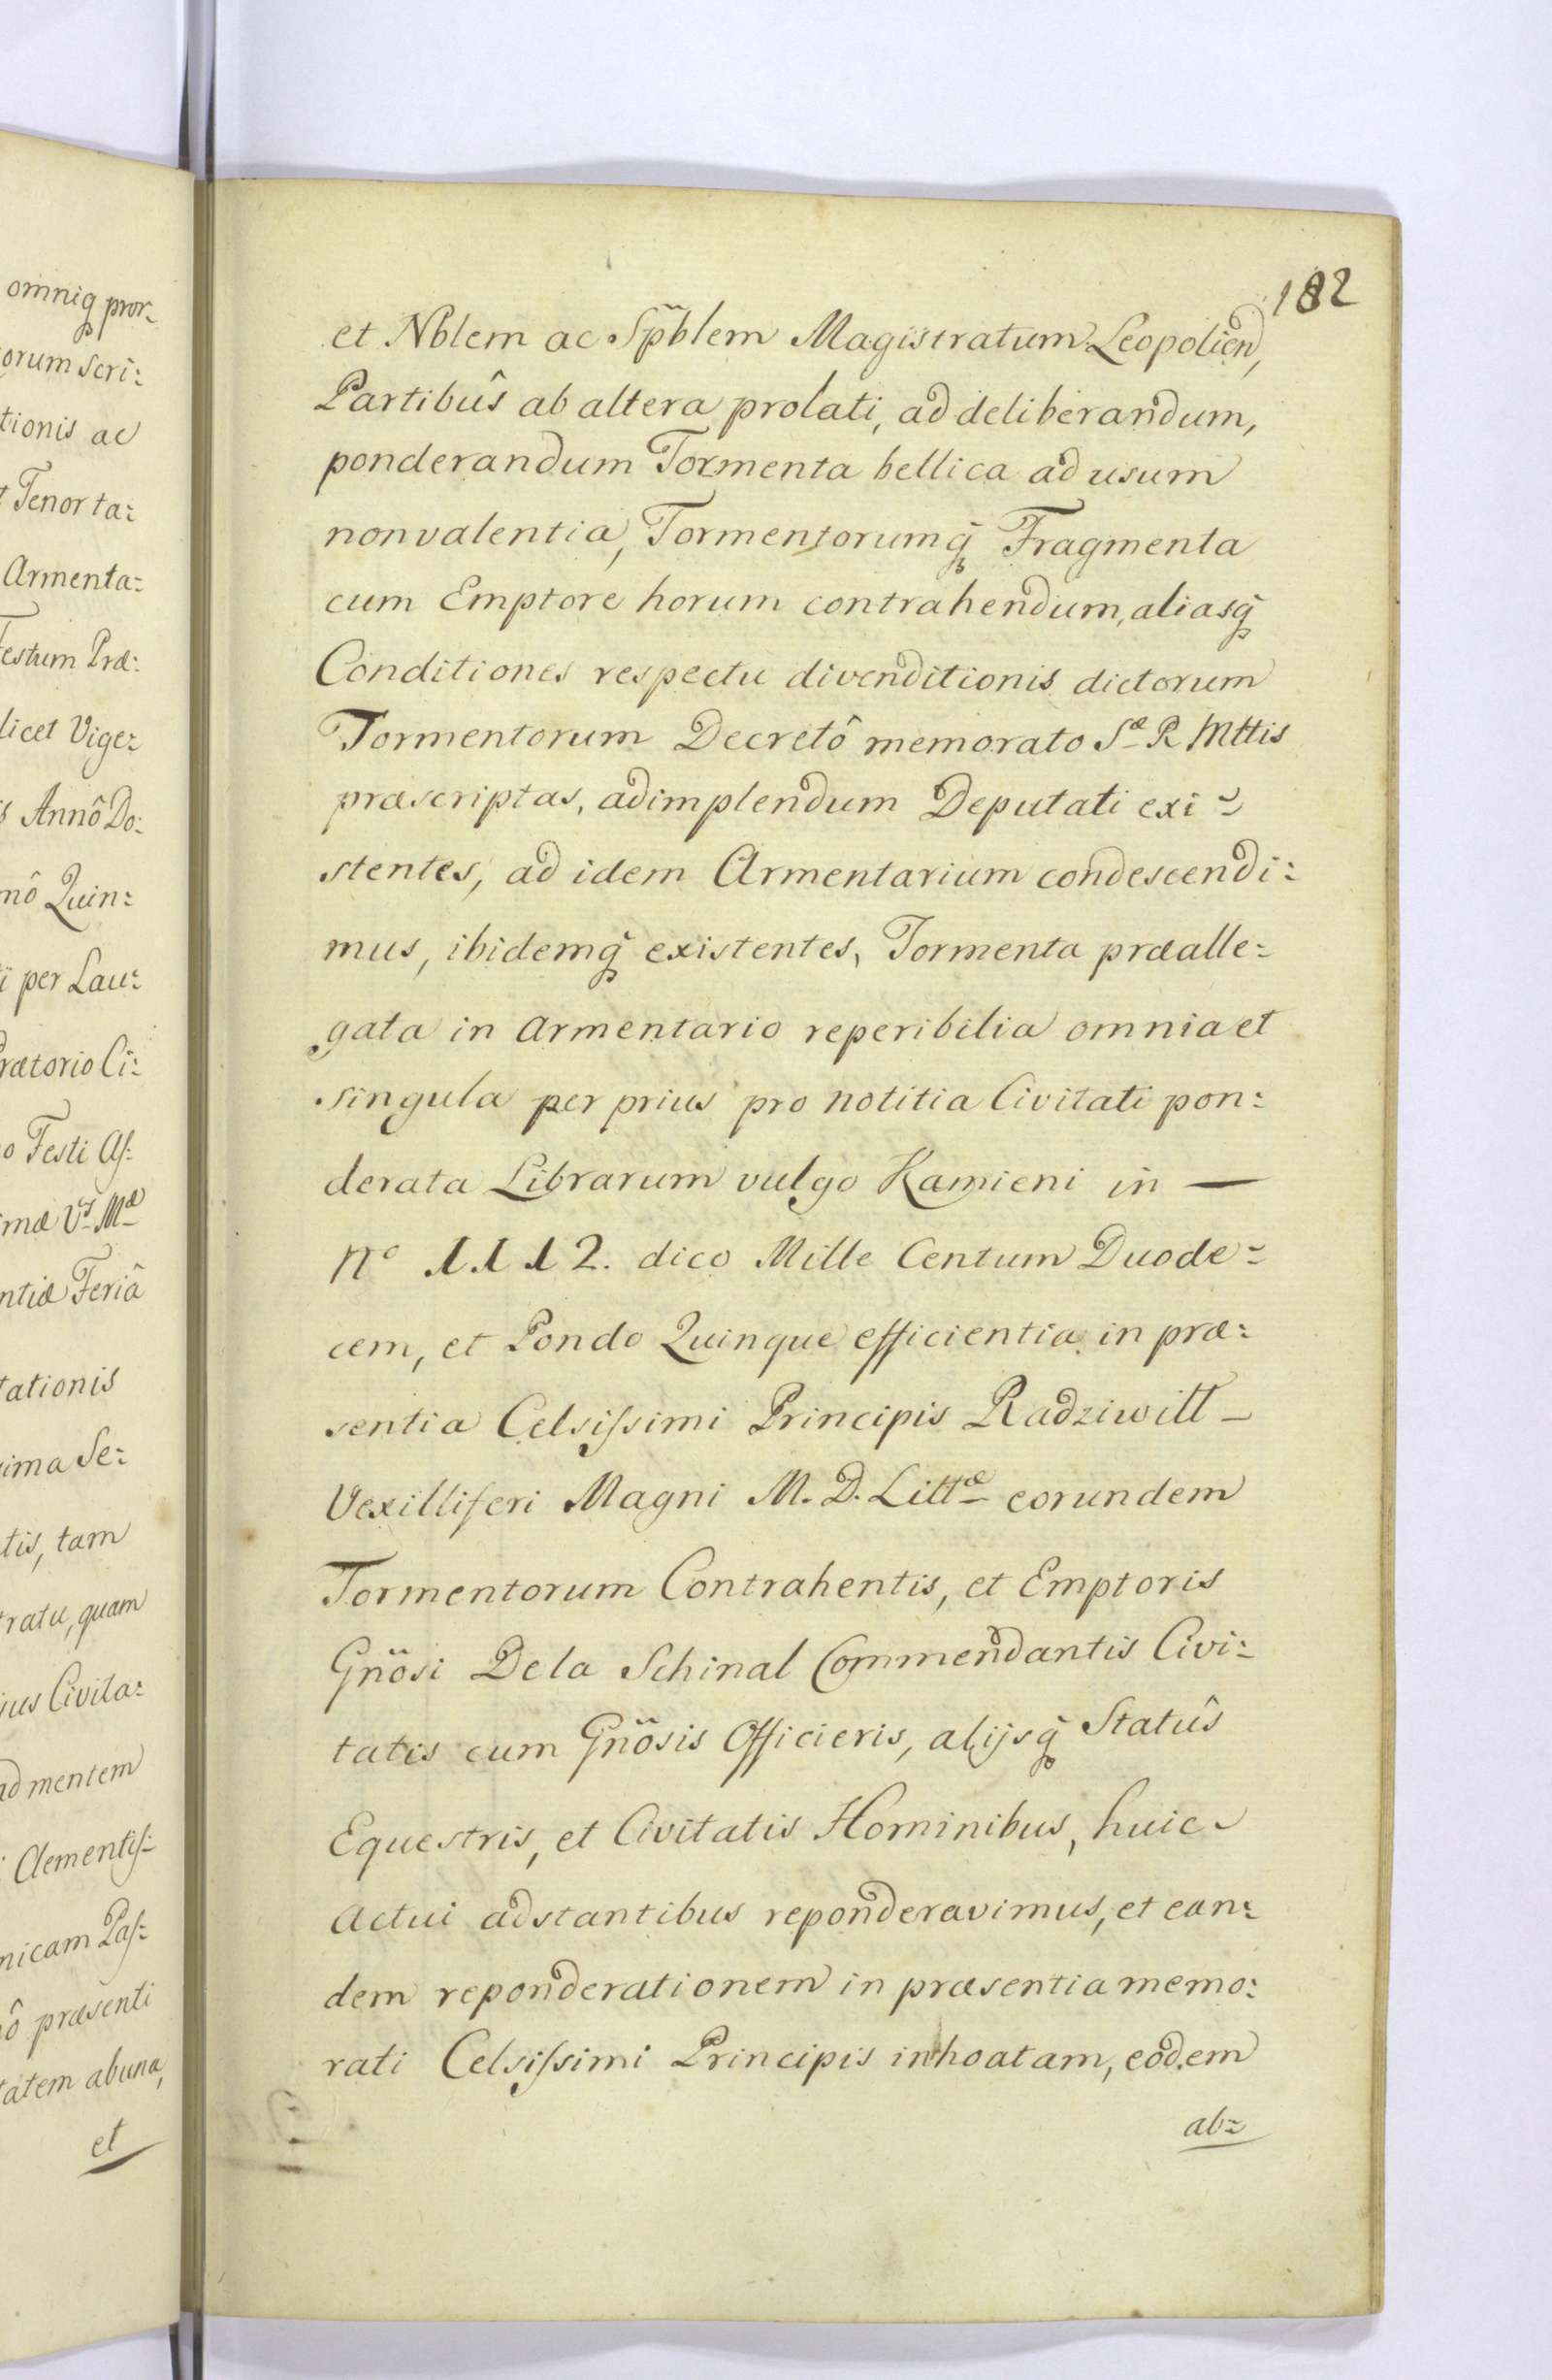 omniq̃ pror-
orum scri:
tionis ac
Tenor ta:
Armenta:
estum Præ:
licet Vige:
s Annô Do:
mô Quin:
per Lau:
rætorio Ci:
o Festi Aſ:
mæ Vᵗ Mᵉ
ntiæ Feriâ
tationis
ima Se:
tis, tam
ratu, quam
ius Civita:
ad mentem
Clementiſ:
nicam Paſ:
ô præsenti
tatem ab una,
et
182
et Nblem ac Sp̃blem Magistratum Leopolien,
Partibûs ab altera prolati, ad deliberandum,
ponderandum Tormenta bellica ad usum
non valentia, Tormentorumq̃ Fragmenta
cum Emptore horum contrahendum, aliasq̃
Conditiones respectu divenditionis dictorum
Tormentorum Decretô memorato Sᵉ R Mttis
præscriptas, adimplendum Deputati exi-
stentes, ad idem Armentarium condescendi:
mus, ibidemq̃ existentes, Tormenta præalle:
gata in Armentario reperibilia omnia et
singula per prius pro notitia Civitati pon:
derata Librarum vulgo Kamieni in —
Nº 1112. dico Mille Centum Duode:
cem, et Pondo Quinque efficientia in præ:
sentia Celsiſsimi Principis Radziwill –
Vexilliferi Magni M. D. Littᵉ eorundem
Tormentorum Contrahentis, et Emptoris
Gñosi De la Schinal Commendantis Civi:
tatis cum Gñosis Officieris, alijsq̃ Statûs
Equestris, et Civitatis Hominibus, huic
Actui adstantibus reponderavimus, et ean:
dem reponderationem in præsentia memo:
rati Celsiſsimi Principis inhoatam, eodem
ab: